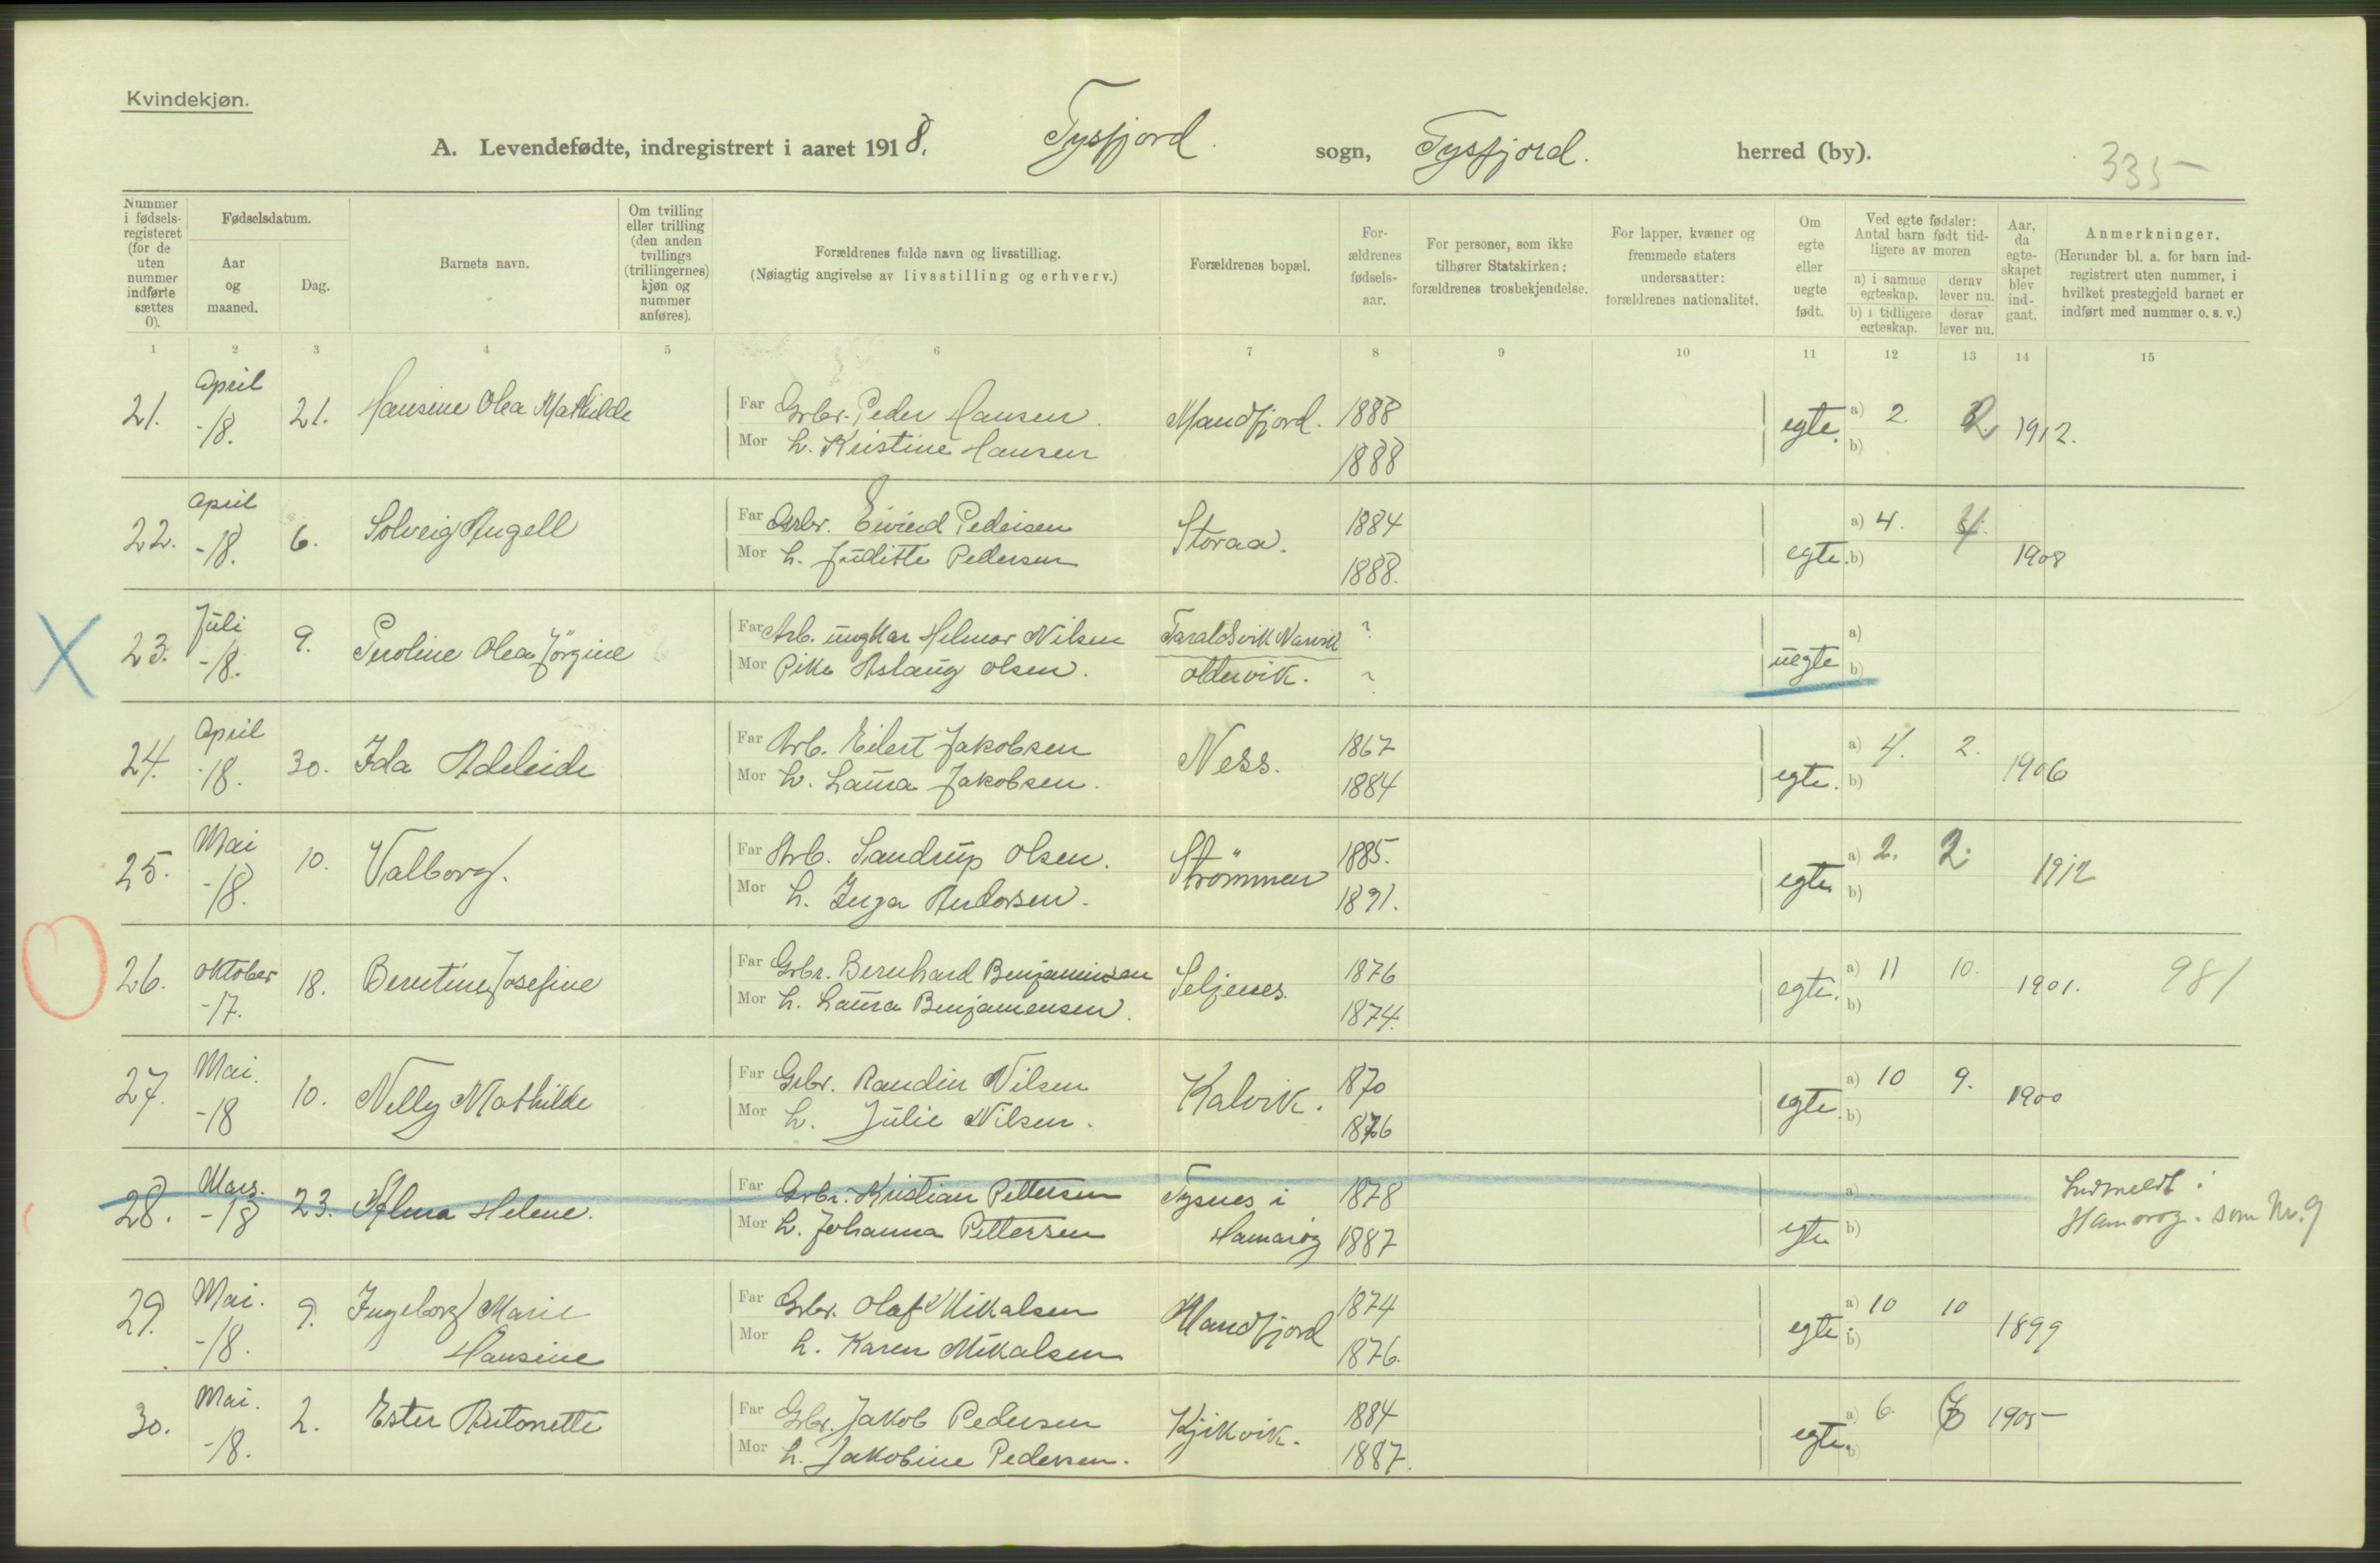 Kvindekjøn.
A. Levendefødte, indregistrert i aaret 1918. Tysfjord sogn, Tysfjord. herred (by).
335
Nummer i fødsels-registeret (for de uten nummer indførte sættes 0).
Fødselsdatum.
Aar og maaned.
Dag.
Barnets navn.
Om tvilling eller trilling (den anden tvillings (trillingernes) kjøn og nummer anføres).
Forældrenes fulde navn og livsstilling.
(Nøiagtig angivelse av livsstilling og erhverv.)
Forældrenes bopæl.
For-ældrenes fødsels-aar.
For personer, som ikke tilhører Statskirken: forældrenes trosbekjendelse.
For lapper, kvæner og fremmede staters undersaatter: forældrenes nationalitet.
Om egte eller uegte født.
Ved egte fødsler: Antal barn født tid-ligere av moren
a) i samme egteskap.
derav lever nu.
b) i tidligere egteskap.
derav lever nu.
Aar, da egte-skapet blev ind-gaat.
Anmerkninger.
(Herunder bl. a. for barn ind-registrert uten nummer, i hvilket prestegjeld barnet er indført med nummer o. s. v.)
1 2 3 4 5 6 7 8 9 10 11 12 13 14 15
21. April -18. 21. Hansine Olea Mathilde Far Grbr. Peder Hansen. Mandfjord. 1888 egte. a) 2 2. 1912.
Mor h. Kristine Hansen 1888 b)
22. April -18. 6. Solveig Angell Far Grbr. Eivind Pedersen Storaa. 1884 egte. a) 4. 4. 1908
Mor h. Juditte Pedersen 1888. b)
23. Juli -18. 9. Peroline Olea Jörgine Far Arb. ungkar Helmor Nilsen Taraldsvik Narvik ? uegte a)
Mor Pike Aslaug Olsen. Oldervik. ? b)
24. April -18. 30. Ida Adeleide Far Arb. Eilert Jakobsen Ness. 1867 egte. a) 4. 2. 1906
Mor h. Laura Jakobsen. 1884 b)
25. Mai -18. 10. Valborg. Far Arb. Sandrup Olsen. Strömmen 1885. egte a) 2. 2. 1912
Mor h. Inga Andorsen. 1891. b)
26. Oktober -17. 18. Berntine Josefine Far Grbr. Bernhard Benjaminsen Seljenes. 1876 egte. a) 11 10. 1901. 981
Mor h. Laura Benjamensen. 1874. b)
27. Mai. -18 10. Nelly Mathilde Far Grbr. Randin Nilsen Kalvik. 1870 egte a) 10 9. 1900
Mor h. Julie Nilsen. 1876 b)
28. Mars. -18 23. Alma Helene. Far Grbr. Kristian Pettersen Tysnes i 1878 egte a) Indmeldt i
Mor h. Johanna Pettersen Hamaröy 1887 b) Hamarøy. som Nr. 9
29. Mai. -18. 9. Ingeborg Marie Far Grbr. Olaf Mikalsen Mandfjord 1874 egte. a) 10 10 1899
Hansine Mor h. Karen Mikalsen 1876. b)
30. Mai. -18. 2. Ester Antonette Far Grbr. Jakob Pedersen Kjikvik. 1884 egte. a) 6. 1905
Mor h. Jakobine Pedersen. 1887. b)